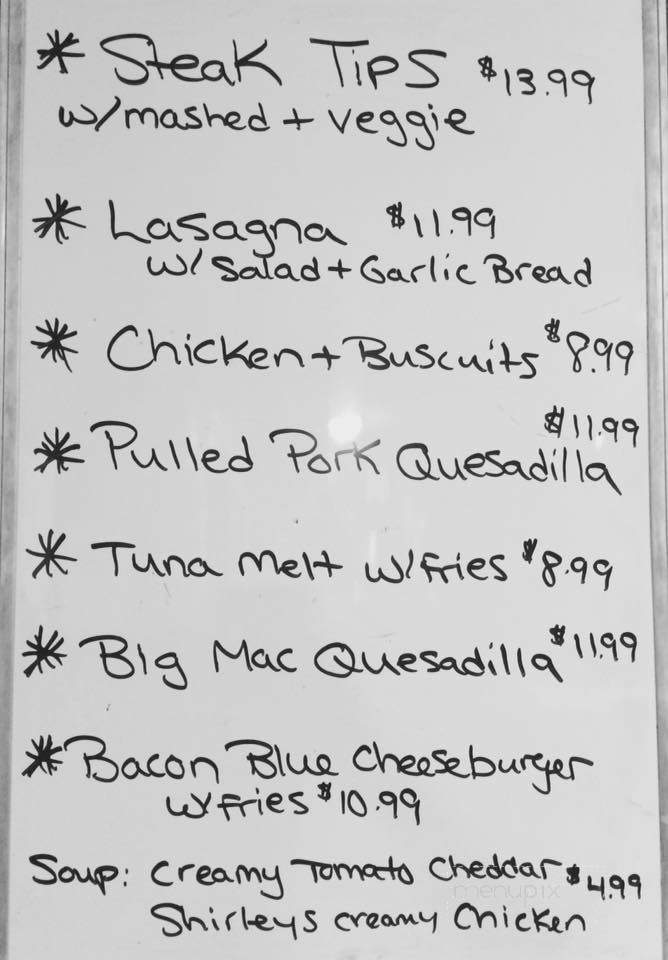 * Steak Tips $13.99
w/mashed + veggie
* Lasagna $11.99
w/ Salad + Garlic Bread
* Chicken + Buscuits $8.99
$11.99
* Pulled Pork Quesadilla
* Tuna Melt w/fries $8.99
* Big Mac Quesadilla $11.99
* Bacon Blue Cheeseburger
w/fries $10.99
Soup: Creamy Tomato Cheddar $4.99
menupix
Shirleys creamy Chicken